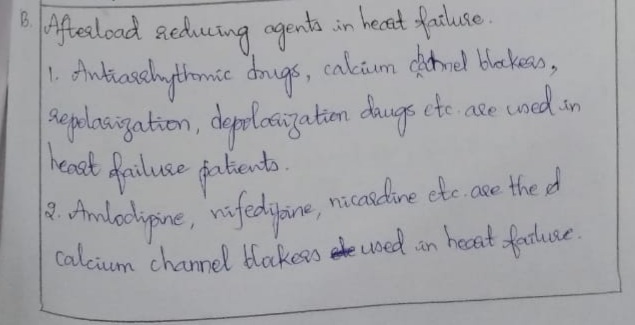 B. Afterload reducing agents in heart failure.
1. Antiarrhythmic drugs, calcium channel blockers,
repolarization, depolarization drugs etc. are used in
heart failure patients.
2. Amlodipine, nifedipine, nicardine etc. are the d
calcium channel blockers used in heart failure.